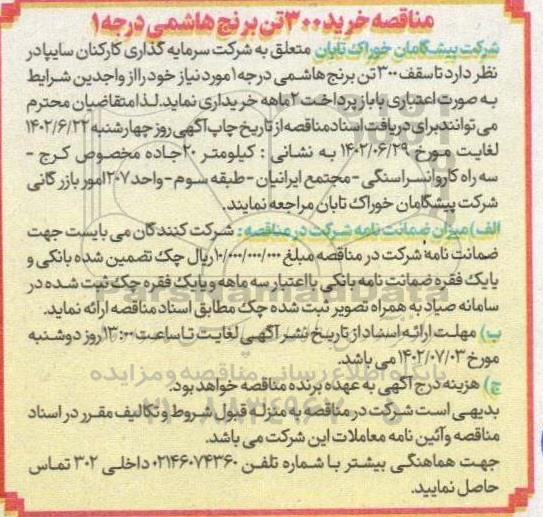 مناقصه خرید ۳۰۰ تن برنج هاشمی درجه ۱
شرکت پیشگامان خوراک تابان متعلق به شرکت سرمایه گذاری کارکنان سایپا در
نظر دارد تا سقف ۳۰۰ تن برنج هاشمی درجه ۱ مورد نیاز خود را از واجدین شرایط
به صورت اعتباری با باز پرداخت ۲ ماهه خریداری نماید. لذا متقاضیان محترم
می توانند برای دریافت اسناد مناقصه از تاریخ چاپ آگهی روز چهارشنبه ۱۴۰۲/۶/۲۲
لغایت مورخ ۱۴۰۲/۰۶/۲۹ به نشانی : کیلومتر ۲۰ جاده مخصوص کرج -
سه راه کاروانسراسنگی - مجتمع ایرانیان - طبقه سوم - واحد ۲۰۷ امور بازرگانی
شرکت پیشگامان خوراک تابان مراجعه نمایند.
الف) میزان ضمانت نامه شرکت در مناقصه : شرکت کنندگان می بایست جهت
ضمانت نامه شرکت در مناقصه مبلغ ۱۰/۰۰۰/۰۰۰/۰۰۰ ریال چک تضمین شده بانکی و
یا یک فقره ضمانت نامه بانکی با اعتبار سه ماهه و یا یک فقره چک ثبت شده در
سامانه صیاد به همراه تصویر ثبت شده چک مطابق اسناد مناقصه ارائه نماید.
ب) مهلت ارائه اسناد از تاریخ نشر آگهی لغایت تا ساعت ۱۳:۰۰ روز دوشنبه
مورخ ۱۴۰۲/۰۷/۰۳ می باشد.
پایگاه اطلاع رسانی مناقصه و مزایده
ج) هزینه درج آگهی به عهده برنده مناقصه خواهد بود.
بدیهی است شرکت در مناقصه به منزله قبول شروط و تکالیف مقرر در اسناد
مناقصه و آئین نامه معاملات این شرکت می باشد.
جهت هماهنگی بیشتر با شماره تلفن ۰۲۱۴۶۰۷۴۳۶۰ داخلی ۳۰۲ تماس
حاصل نمایید.